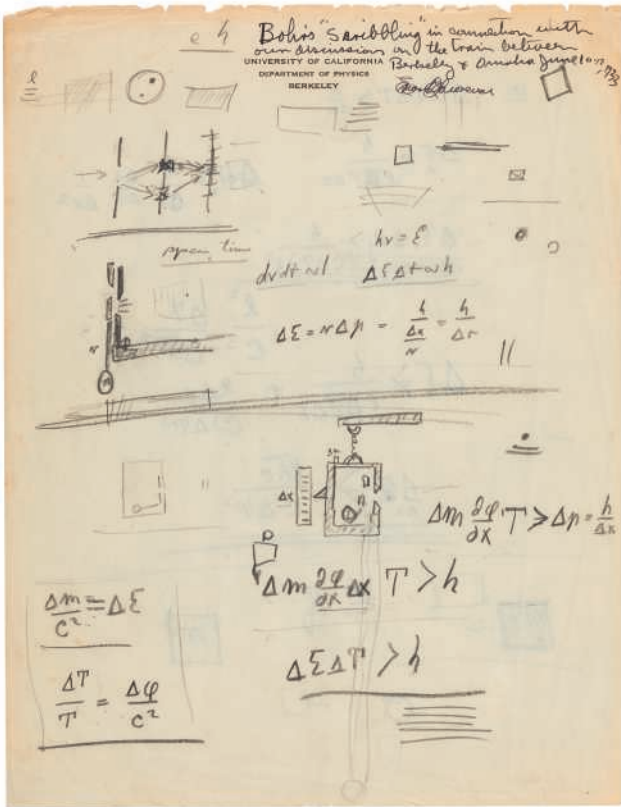 e h
Bohr's "scribbling" in connection with
our discussion on the train between
Berkeley & Omaha June 10th, 1933
UNIVERSITY OF CALIFORNIA
DEPARTMENT OF PHYSICS
BERKELEY
e
space, time
hν = E
dν dt ~ 1 ΔE Δt ~ h
ΔE = v Δp = h / (Δx / v) = h / Δt
v
Δx
Δm ∂φ/∂x T > Δp = h/Δx
Δm ∂φ/∂x Δx T > h
Δm/c² = ΔE
ΔE ΔT > h
ΔT/T = Δφ/c²